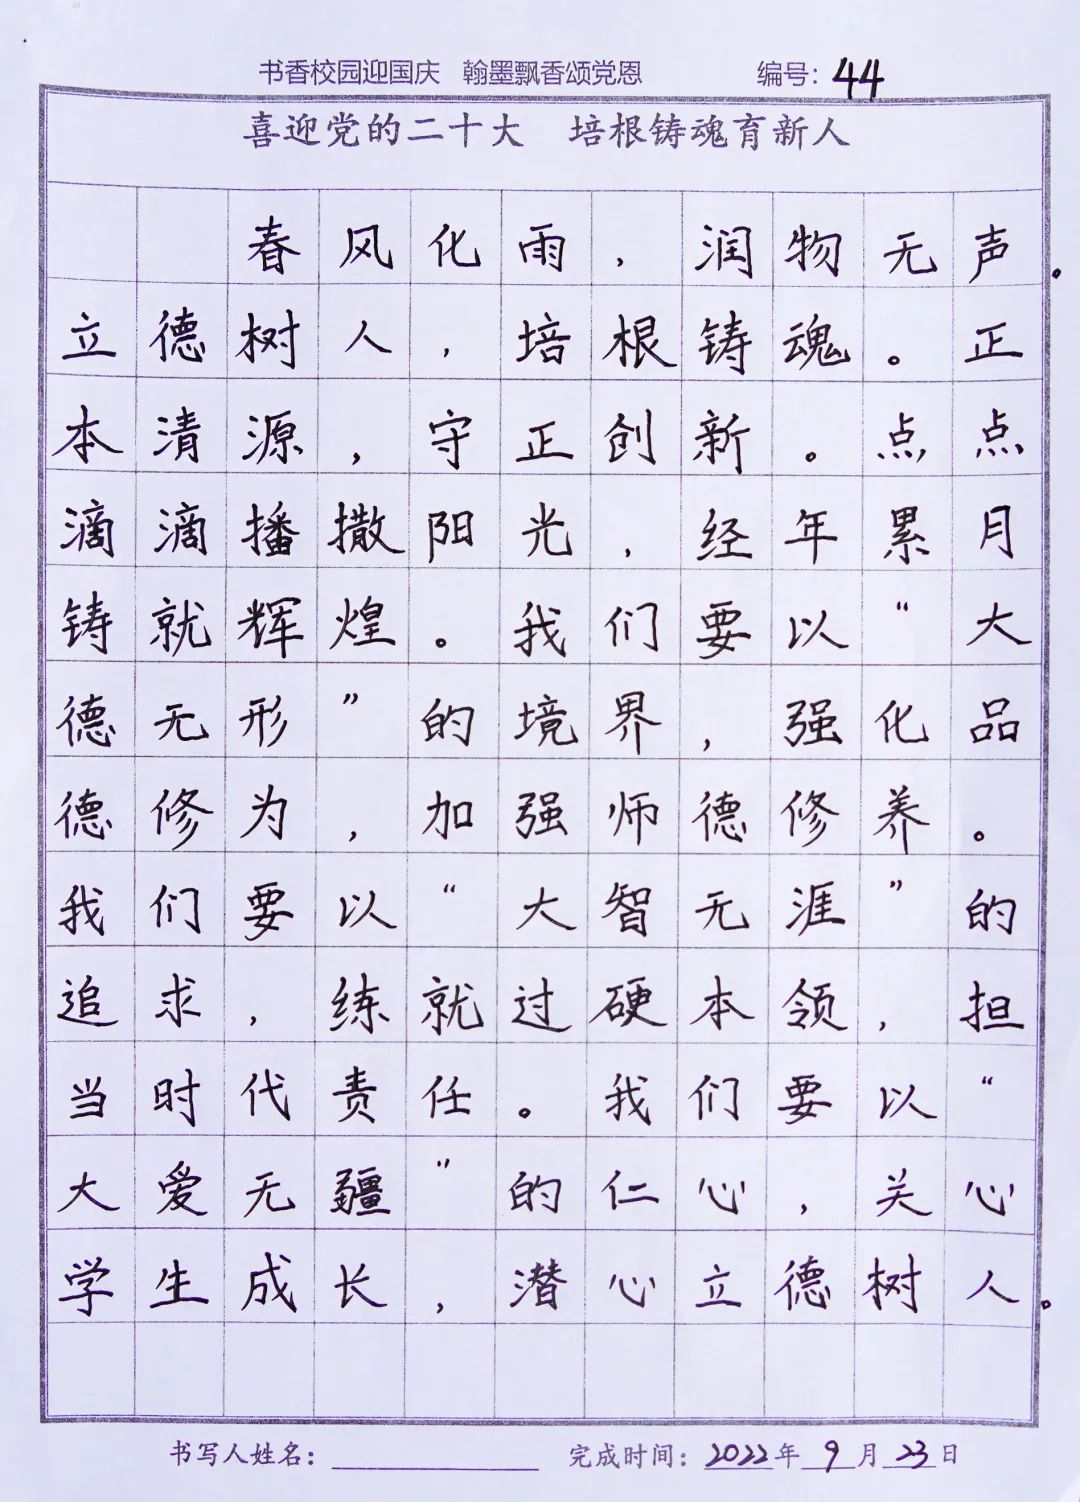 书香校园迎国庆 翰墨飘香颂党恩 编号：44
喜迎党的二十大 培根铸魂育新人
春风化雨，润物无声。
立德树人，培根铸魂。正
本清源，守正创新。点点
滴滴播撒阳光，经年累月
铸就辉煌。我们要以“大
德无形”的境界，强化品
德修为，加强师德修养。
我们要以“大智无涯”的
追求，练就过硬本领，担
当时代责任。我们要以“
大爱无疆”的仁心，关心
学生成长，潜心立德树人。
书写人姓名： 完成时间：2022年9月23日